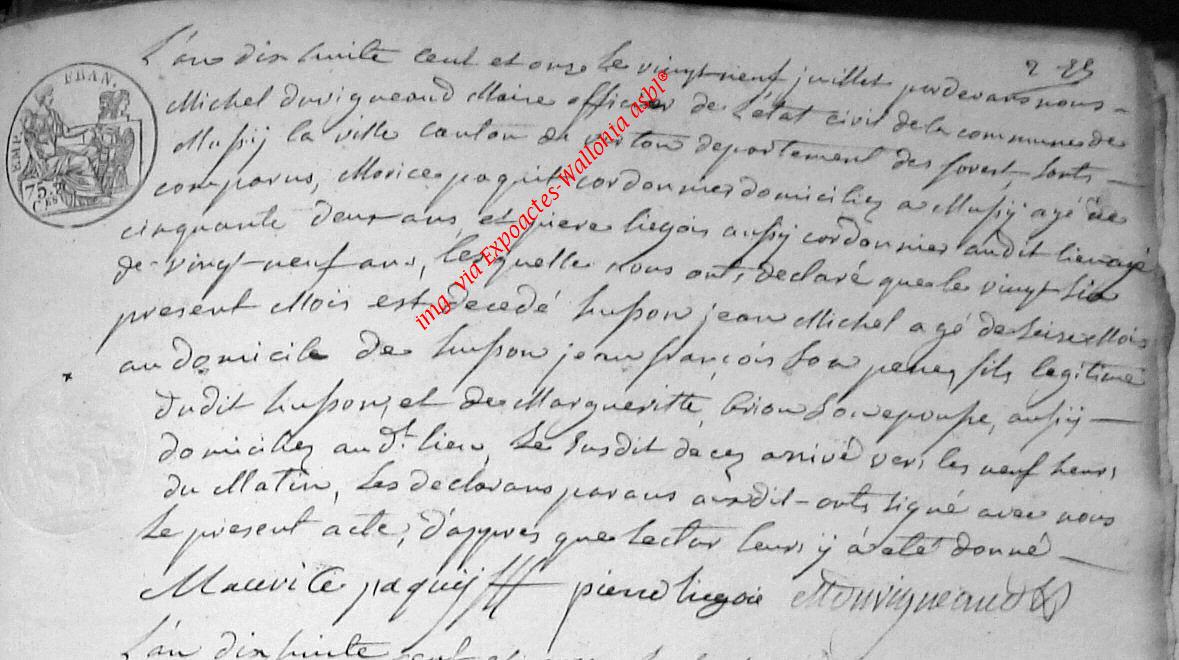 2-85
FRAN.
EMP.
75.
Ces
L'an dix huite cent et onze Le vingt neuf juillet par devans nous -
Michel duvigneaud Maire officier de L'etat civil de la commune de
Mussÿ la ville canton de virton departement des forest, sonts -
comparus, Morice paquit cordonnier domiciliez a Mussÿ agé de
cinquante deux ans, et piere liegois aussÿ cordonnier audit lieu agé
de vingt-neuf ans, lesquelle nous ont, declaré que le vingt six
present Mois est decedé husson jean Michel agé de Seise Mois
au domicile de husson jean françois Son perre, fils legitime
dudit husson, et de Margueritte, brion Son epouse, aussÿ -
domiciliez audt lieu, Le Susdit decez arrivé vers les neuf heurs
du Matin, Les declarans parans ausdit - onts Signé avec nous
Le present acte, d'appres que Lectur leurs ÿ a eté donné -
Maurite paquis pierre liegois MDuvigneaud
L'an dix huite cent et
img via Expoactes-Wallonia asbl®